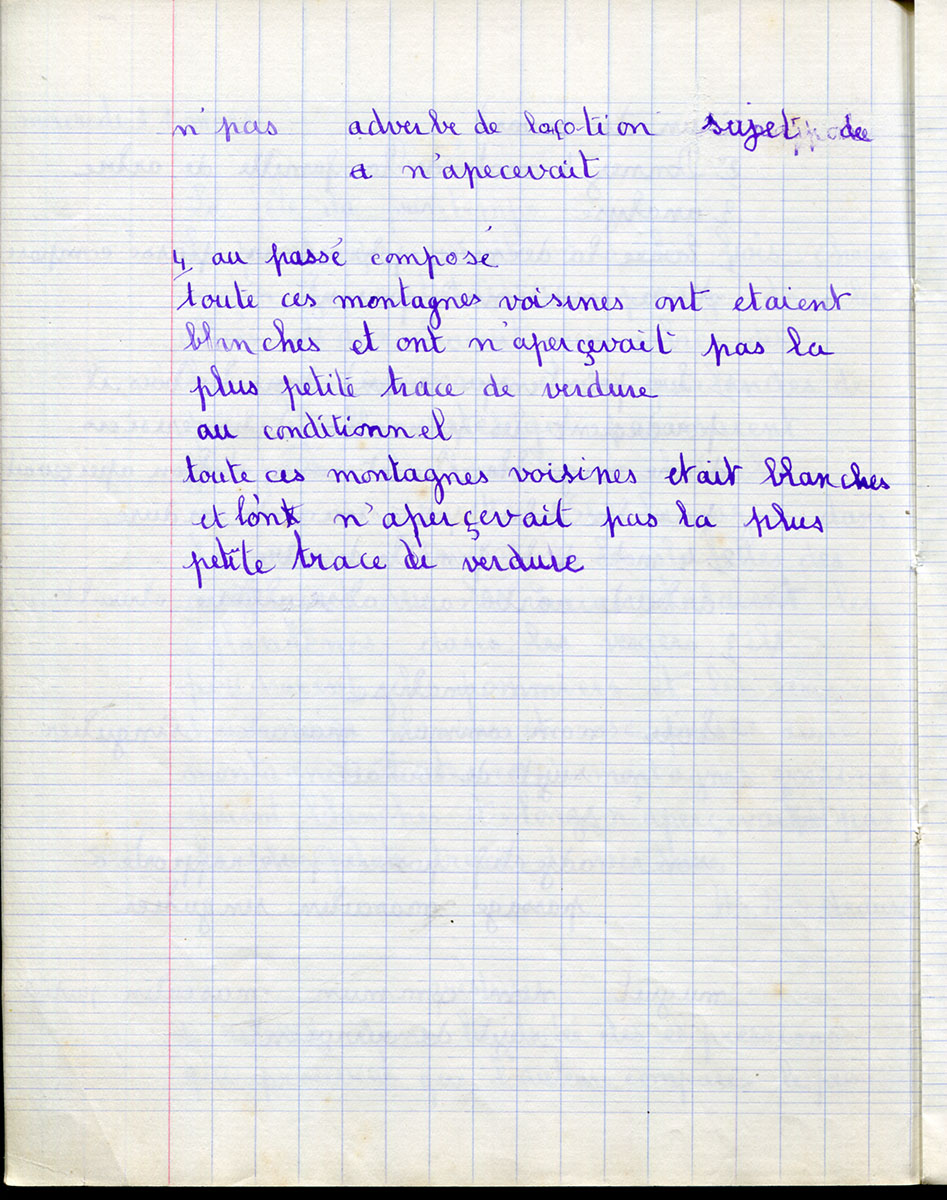 n' pas adverbe de laço-tion sujet de
a n'apecevait
4 au passé composé
toute ces montagnes voisines ont etaient
blanches et ont n'aperçevait pas la
plus petite trace de verdure
au conditionnel
toute ces montagnes voisines etait blanches
et l'ont n'aperçevait pas la plus
petite trace de verdure